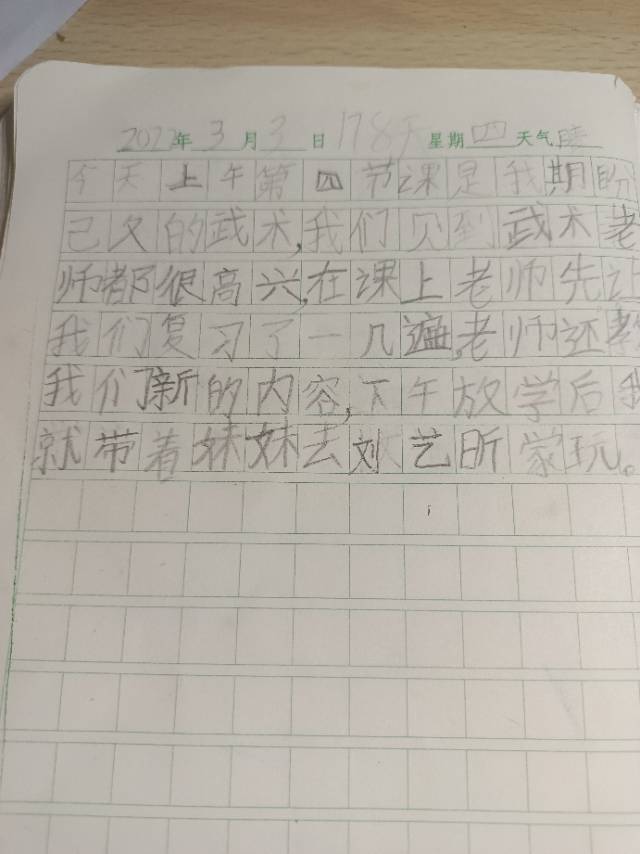 2022年3月3日 178天 星期四 天气晴
今天上午第四节课是我期盼
已久的武术,我们见到武术老
师都很高兴,在课上老师先让
我们复习了一几遍,老师还教
我们新的内容,下午放学后我
就带着妹妹去刘艺昕家玩。